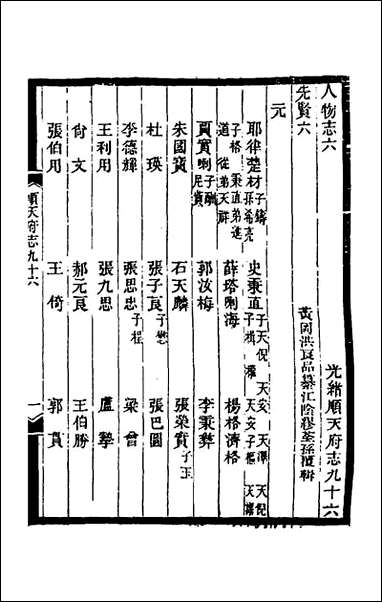 光緒順天府志九十六
人物志六
黃岡洪良品纂江陰繆荃孫覆輯
先賢六
元
耶律楚材子鑄 孫希亮 史秉直子天倪 天安 天澤 天倪
子楫 權 天安子樞 天澤
子格 秉直弟進
道 從弟天祥 薛塔剌海 楊格濟格
賈實喇子 尼實 郭汝梅 李秉彝
朱國寶 石天麟 張榮實子玉
杜瑛 張子良子懋 張巴圖
李德輝 張思忠子柽 梁曾
王利用 張九思 盧摯
尚文 郝元良 王伯勝
張伯用 王倚 郭貫
順天府志九十六 一